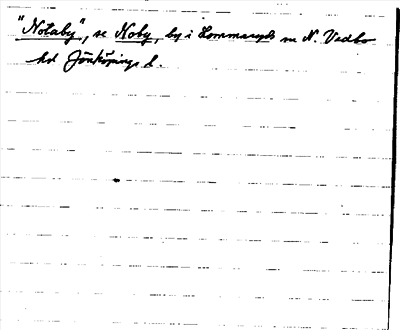 "Notaby", se Noby, by i Lommaryds sn N. Vedbo
hd Jönköpings l.